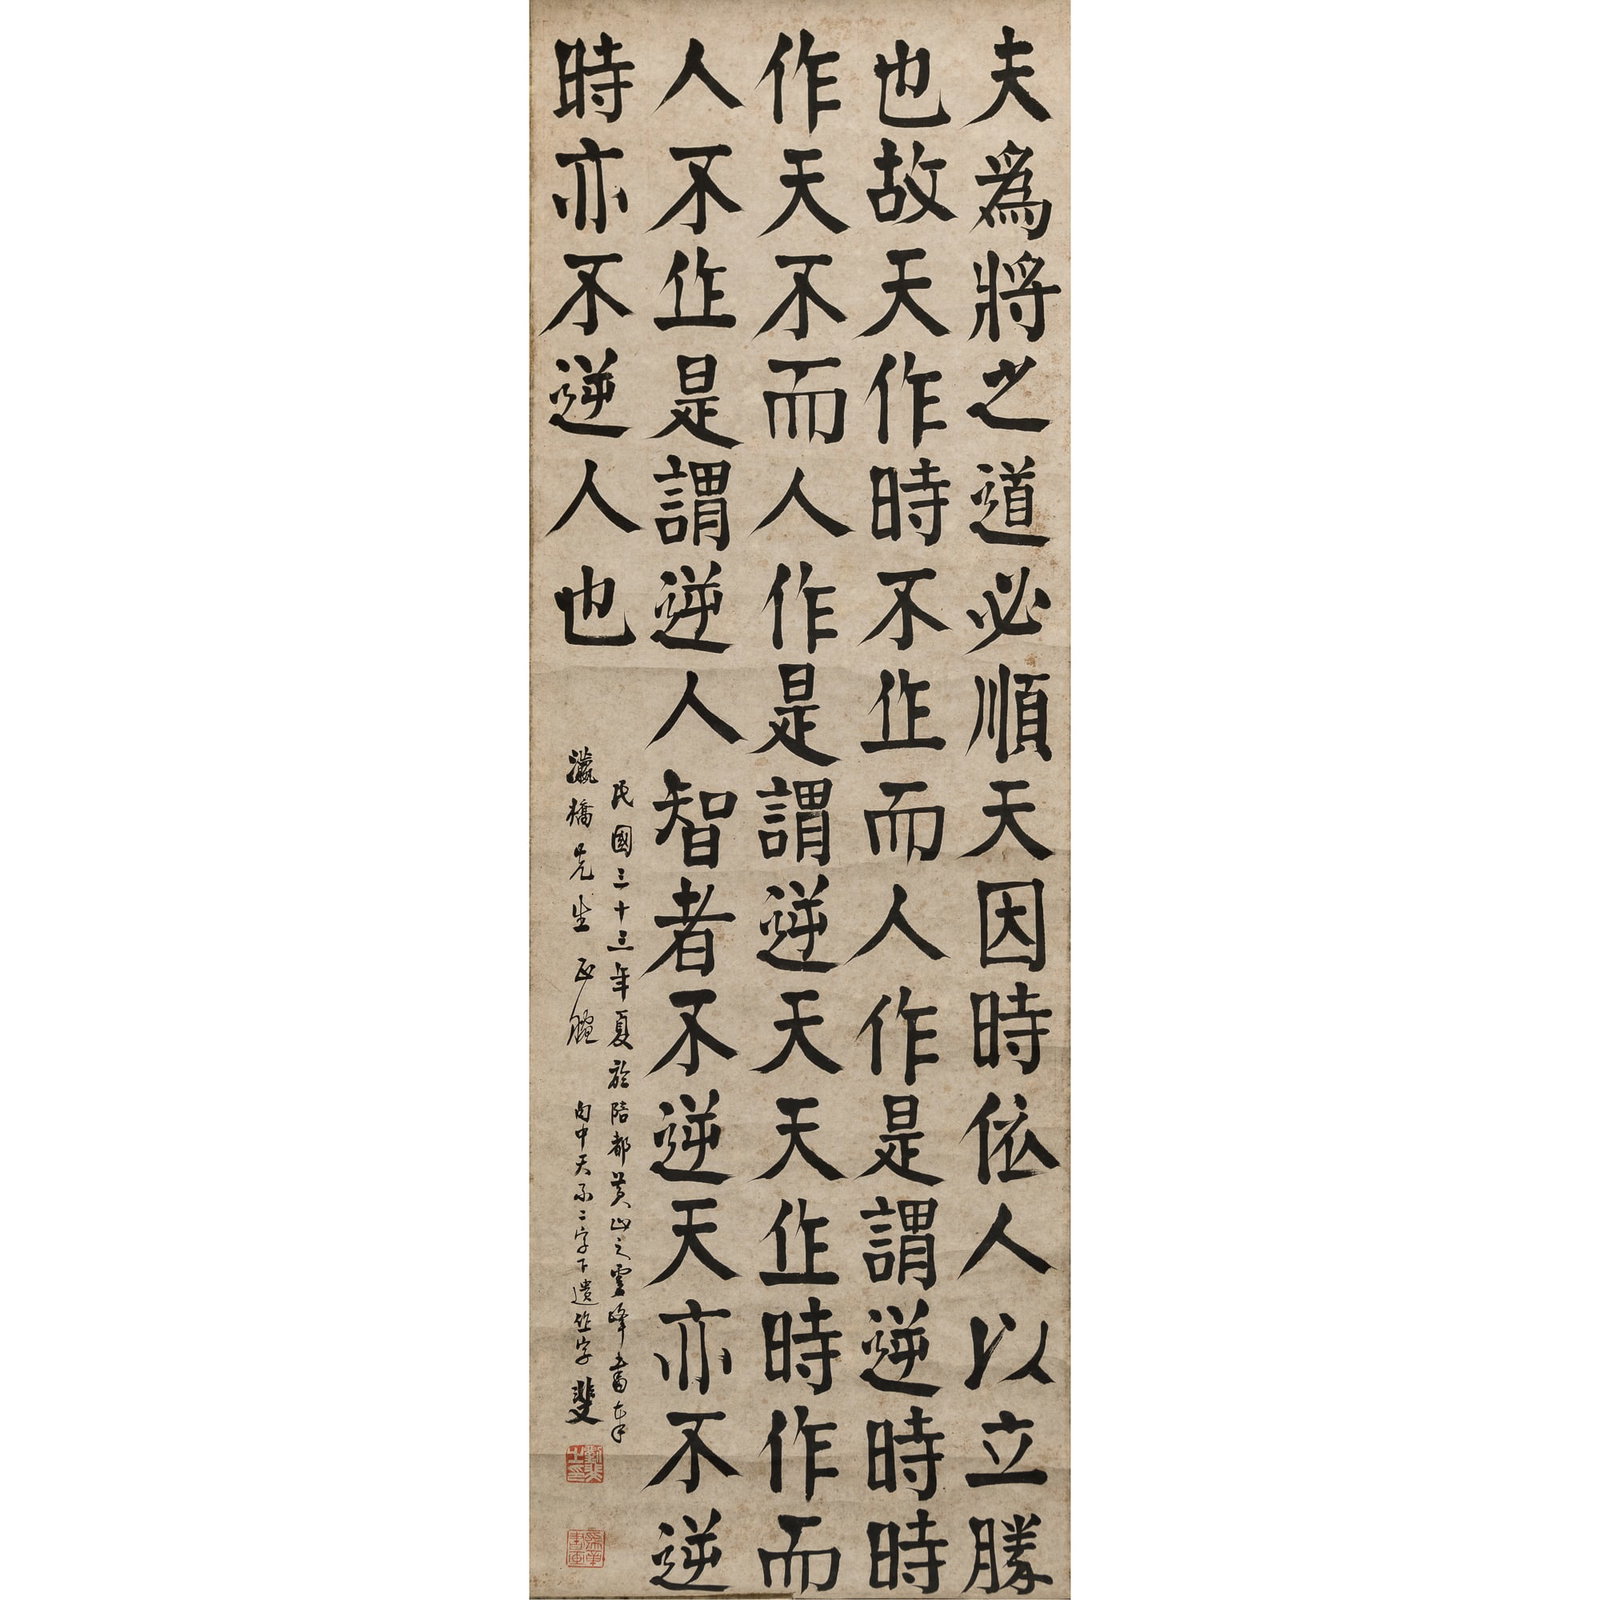 夫爲將之道必順天因時依人以立勝
也故天作時不作而人作是謂逆時時
作天不而人作是謂逆天天作時作而
人不作是謂逆人智者不逆天亦不逆
時亦不逆人也
民國三十三年夏於陪都黃山之雲峰書奉
瀛橋先生 正
內中天不二字下遺作字 斐